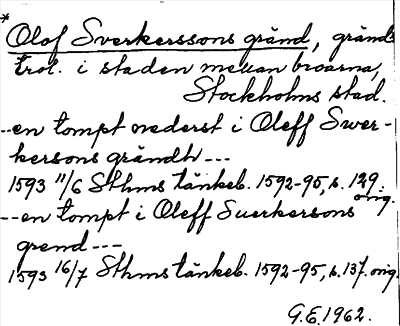 *
Olof Sverkerssons gränd, gränd
trol. i staden mellan broarna,
Stockholms stad.
--en tompt nederst i Oleff Swer-
kersons grändh ---
1593 11/6 Sthms tänkeb. 1592-95, s. 129.
orig.
--en tompt i Oleff Suerkersons
grend ---
1593 16/7 Sthms tänkeb. 1592-95, s. 137. orig.
G.E. 1962.